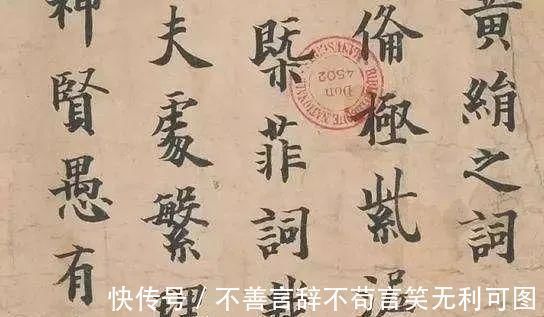 黃絹之詞
俻極紫
旣菲詞
夫處繁理
神賢愚有
Don
4502
快传号 / 不善言辞不苟言笑无利可图